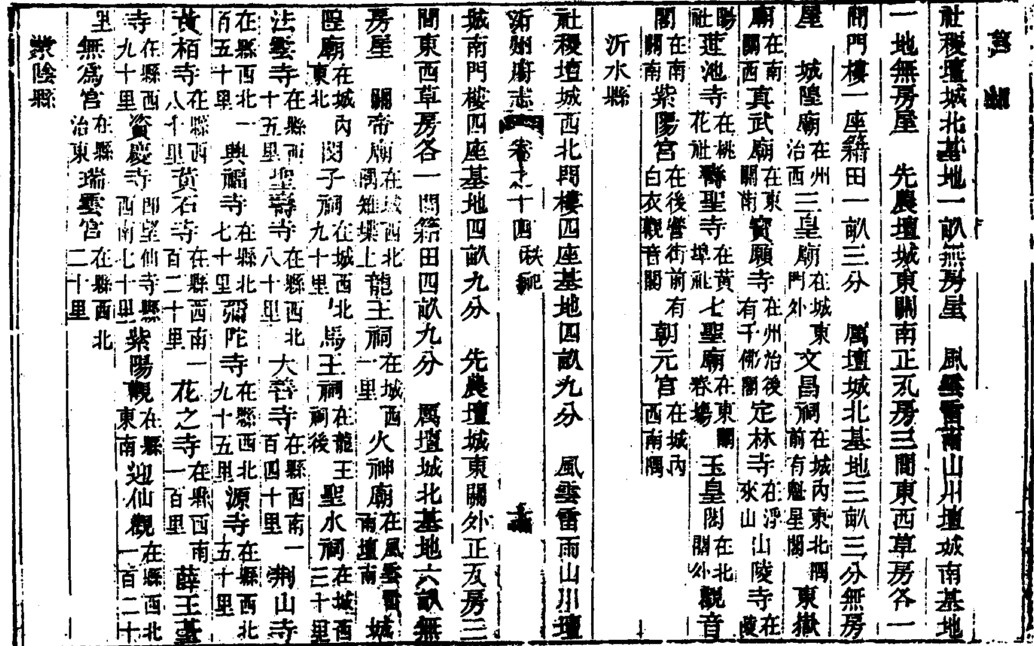 莒州
社稷壇城北基地一畝無房屋　風雲雷雨山川壇城南基地
一地無房屋　先農壇城東關南正瓦房三間東西草房各一
間門樓一座籍田一畝三分　厲壇城北基地三畝三分無房
屋　城隍廟在州治西三皇廟在城東門外文昌祠在城內東北隅前有魁星閣東嶽
廟在南關西真武廟在東關街寶願寺在州治後有千佛閣定林寺在浮來山山陵寺在陵陽
社蓮池寺在桃花社壽聖寺在黃埠社七聖廟在東關春場玉皇閣在北關外觀音
閣在南關南紫陽宮在後營街前有白衣觀音閣朝元宮在城內西南隅
沂水縣
社稷壇城西北門樓四座基地四畝九分　風雲雷雨山川壇
沂州府志　卷之十四　秩祀
城南門樓四座基地四畝九分　先農壇城東關外正瓦房三
間東西草房各一間籍田四畝九分　厲壇城北基地六畝無
房屋　關帝廟在城西北隅雉堞上龍王祠在城西一里火神廟在風雲雷雨壇南城
隍廟在城內東北閔子祠在城西北九十里馬王祠在龍王祠後聖水祠在城西三十里
法雲寺在縣西十五里聖壽寺在縣西北八十里大善寺在縣西南一百四十里荆山寺
在縣西北一百五十里興福寺在縣北七十里彌陀寺在縣西北九十五里源寺在縣西北五十里
黃栢寺在縣西八十里黃石寺在縣西南一百二十里花之寺在縣西南一百里薛王基
寺在縣西九十里資慶寺即望仙寺縣西南七十里紫陽觀在縣東南迎仙觀在縣西北一百二十
里無爲宮在縣治東瑞雲宮在縣西北二十里
蒙陰縣